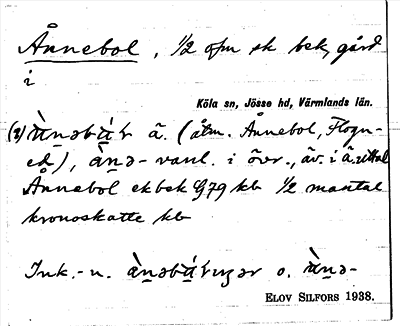 Ånnebol, 1/2 ofm sk bek, gård
i
Köla sn, Jösse hd, Värmlands län.
(2) ã. (åtm. Ånnebol, Flogn-
ed), - vanl. i övr., äv. i ä. uttal
Ånnebol ekbek G79 kb 1/2 mantal
kronoskatte kb
Ink.-n. o.
ELOV SILFORS 1938.